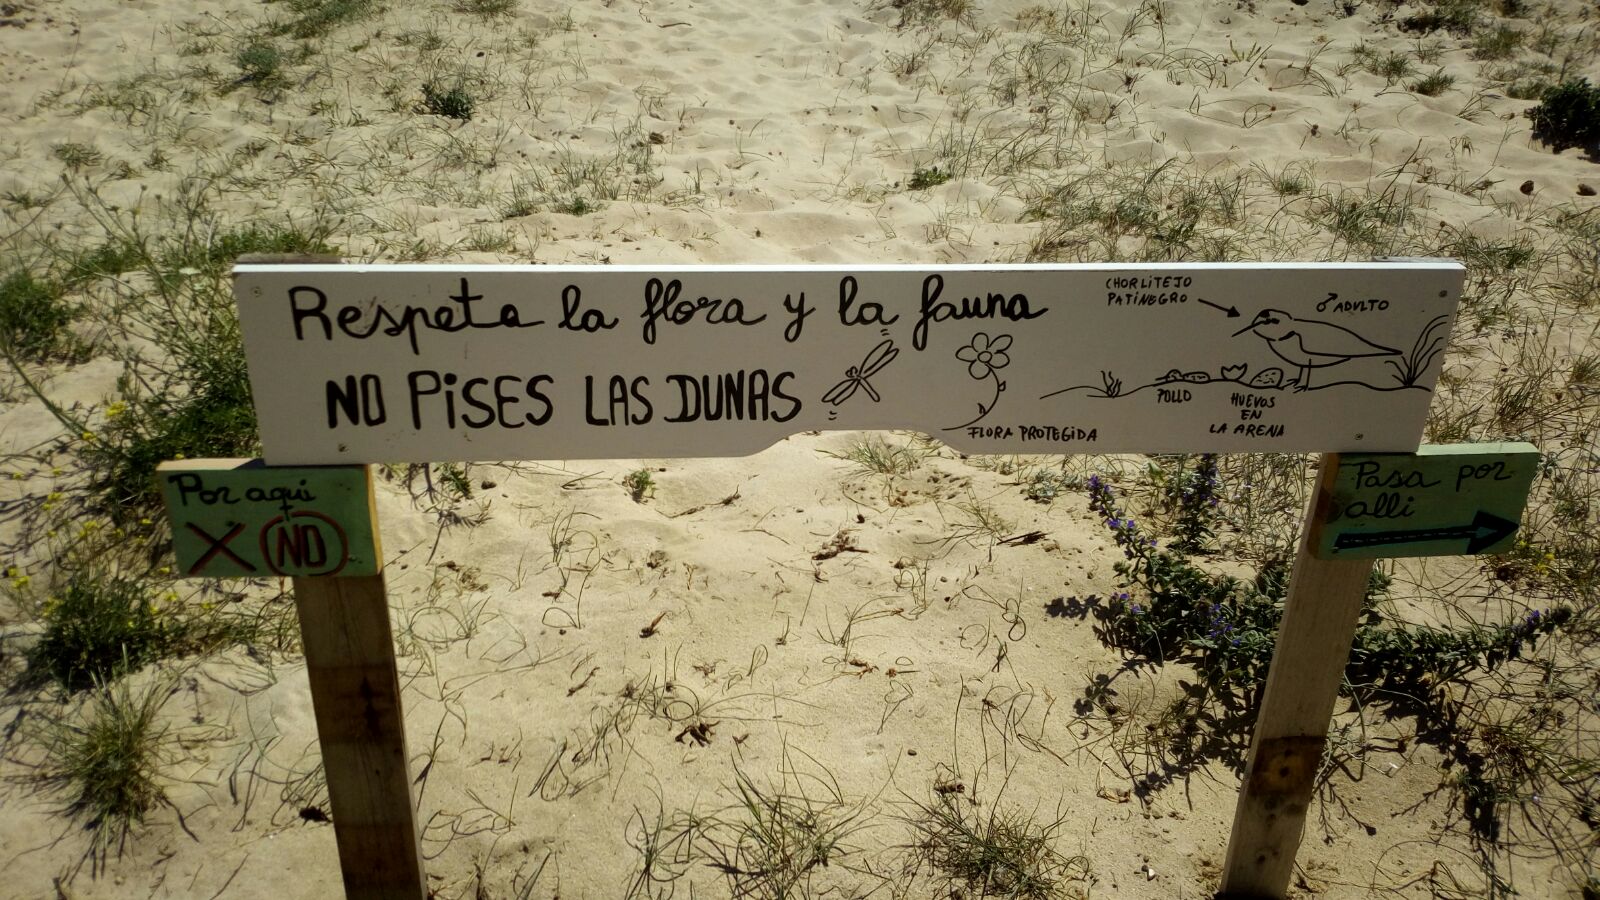 Respeta la flora y la fauna
NO PiSES LAS DUNAS
FLORA PROTEGIDA
CHORLITEJO
PATINEGRO
♂ ADULTO
POLLO
HUEVOS
EN
LA ARENA
Por aquí
X NO
Pasa por
alli